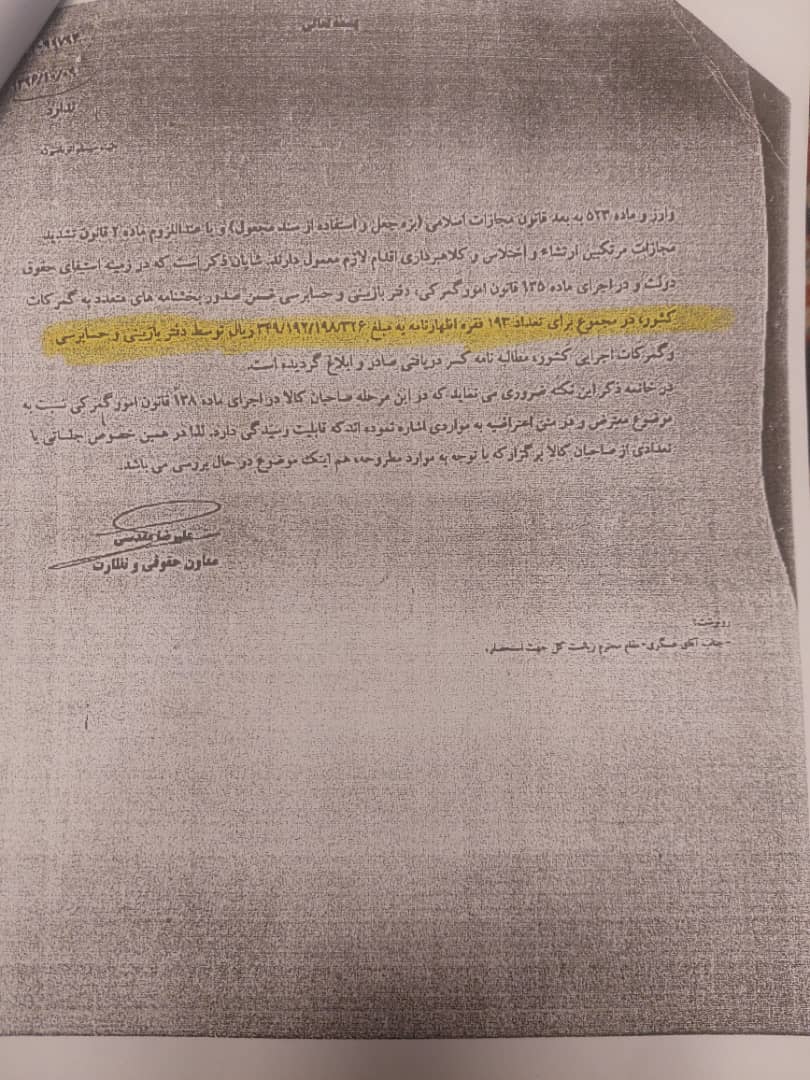 بسمه تعالی
۱۳۹۶/۱۰/۰۹
ندارد
وارز و ماده ۵۲۳ به بعد قانون مجازات اسلامی (بزه جعل و استفاده از سند مجعول) و یا عنداللزوم ماده ۲ قانون تشدید
مجازات مرتکبین ارتشاء و اختلاس و کلاهبرداری اقدام لازم معمول دارند. شایان ذکر است که در زمینه استیفای حقوق
دولت و در اجرای ماده ۱۳۵ قانون امور گمرکی، دفتر بازبینی و حسابرسی ضمن صدور بخشنامه های متعدد به گمرکات
کشور، در مجموع برای تعداد ۱۹۳ فقره اظهارنامه به مبلغ ۳۴۹/۱۹۲/۱۹۸/۳۲۶ ریال توسط دفتر بازبینی و حسابرسی
و گمرکات اجرایی کشور، مطالبه نامه کسر دریافتی صادر و ابلاغ گردیده است.
در خاتمه ذکر این نکته ضروری می نماید که در این مرحله صاحبان کالا در اجرای ماده ۱۳۸ قانون امور گمرکی نسبت به
موضوع معترض و در متن اعتراضیه به مواردی اشاره نموده اند که قابلیت رسیدگی دارد. لذا در همین خصوص جلساتی با
تعدادی از صاحبان کالا برگزار که با توجه به موارد مطروحه، هم اینک موضوع در حال بررسی می باشد.
علیرضا مقدسی
معاون حقوقی و نظارت
رونوشت:
- جناب آقای عسگری- مقام محترم ریاست کل جهت استحضار.